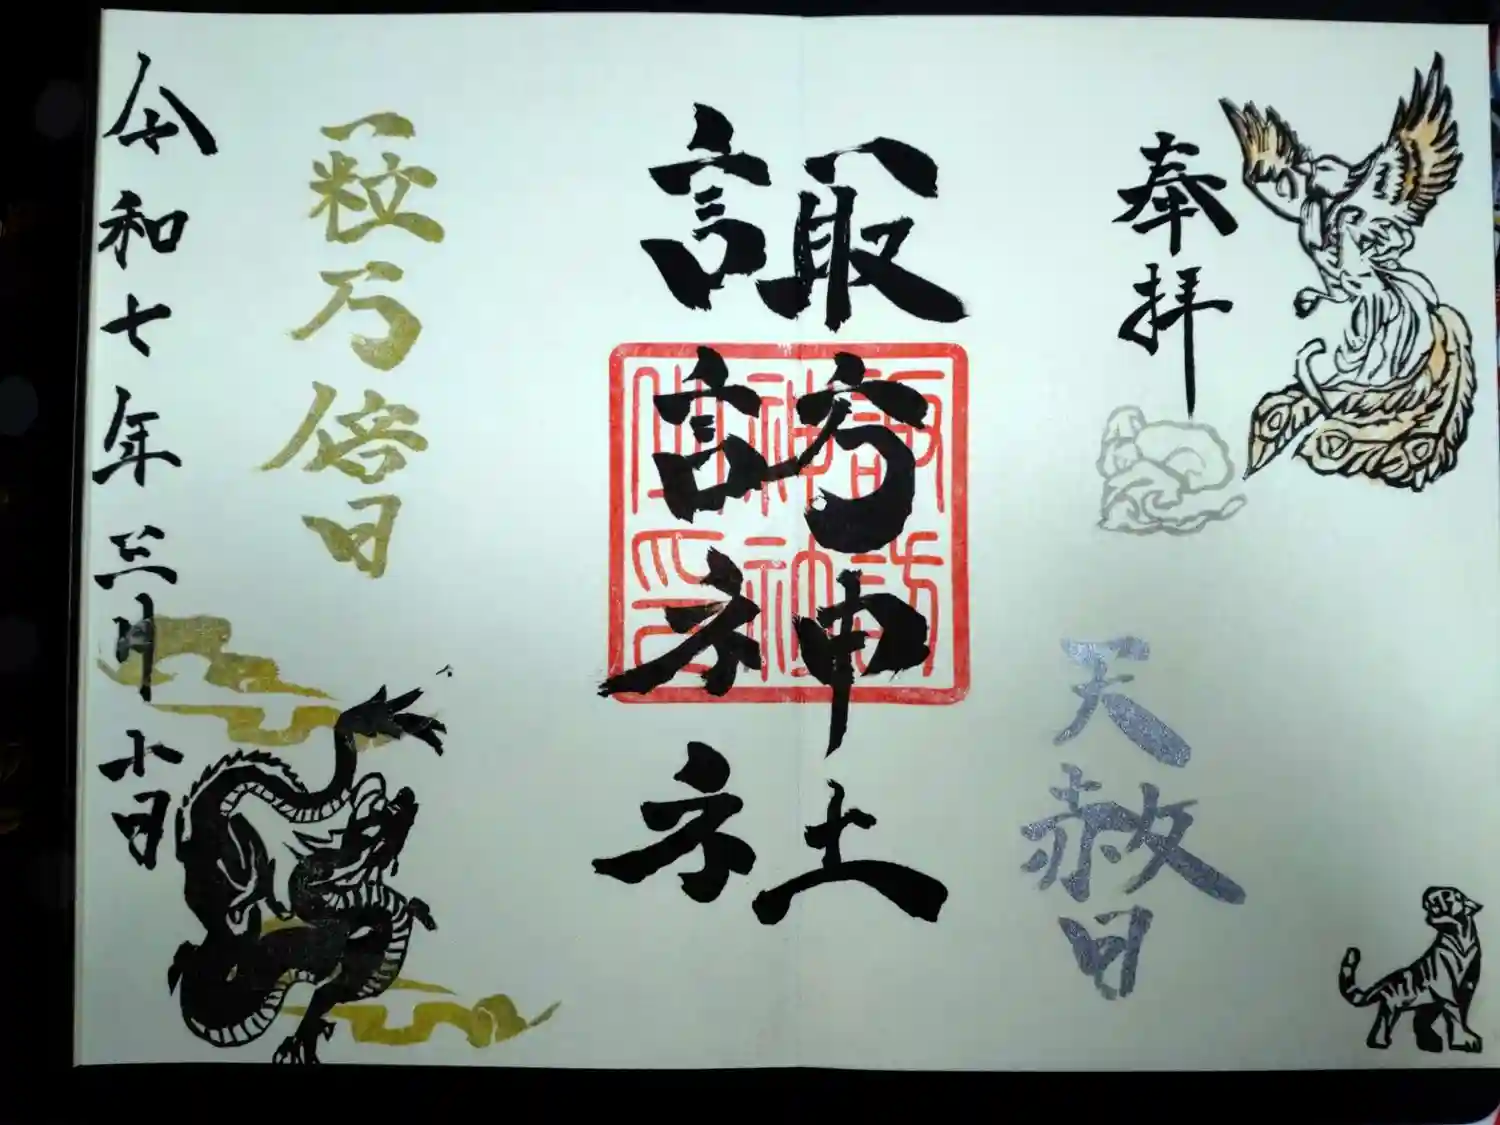 奉拝
天赦日
諏訪神社
諏訪
神社
一粒万倍日
令和七年三月十日